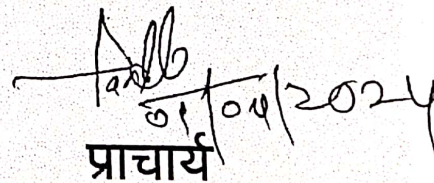 01/04/2024
प्राचार्य